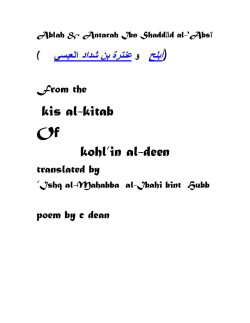 Ablah & Antarah Ibn Shaddād al-'Absī
(ابلح و عنترة بن شداد العبسي )
From the
kis al-kitab
Of
kohl'in al-deen
translated by
'Ishq al-Mahabba al-Ibahi bint Hubb
poem by c dean